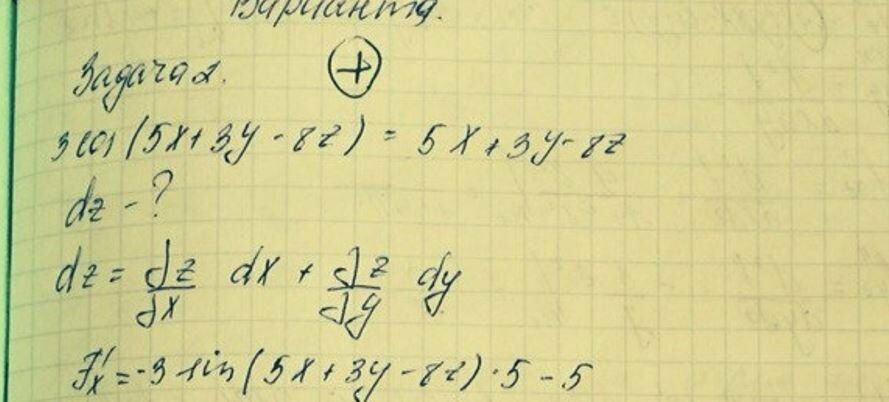 Задача 2. +
3 cos (5x + 3y - 8z) = 5x + 3y - 8z
dz - ?
dz = ∂z/∂x dx + ∂z/∂y dy
F'x = -3 sin (5x + 3y - 8z) · 5 - 5